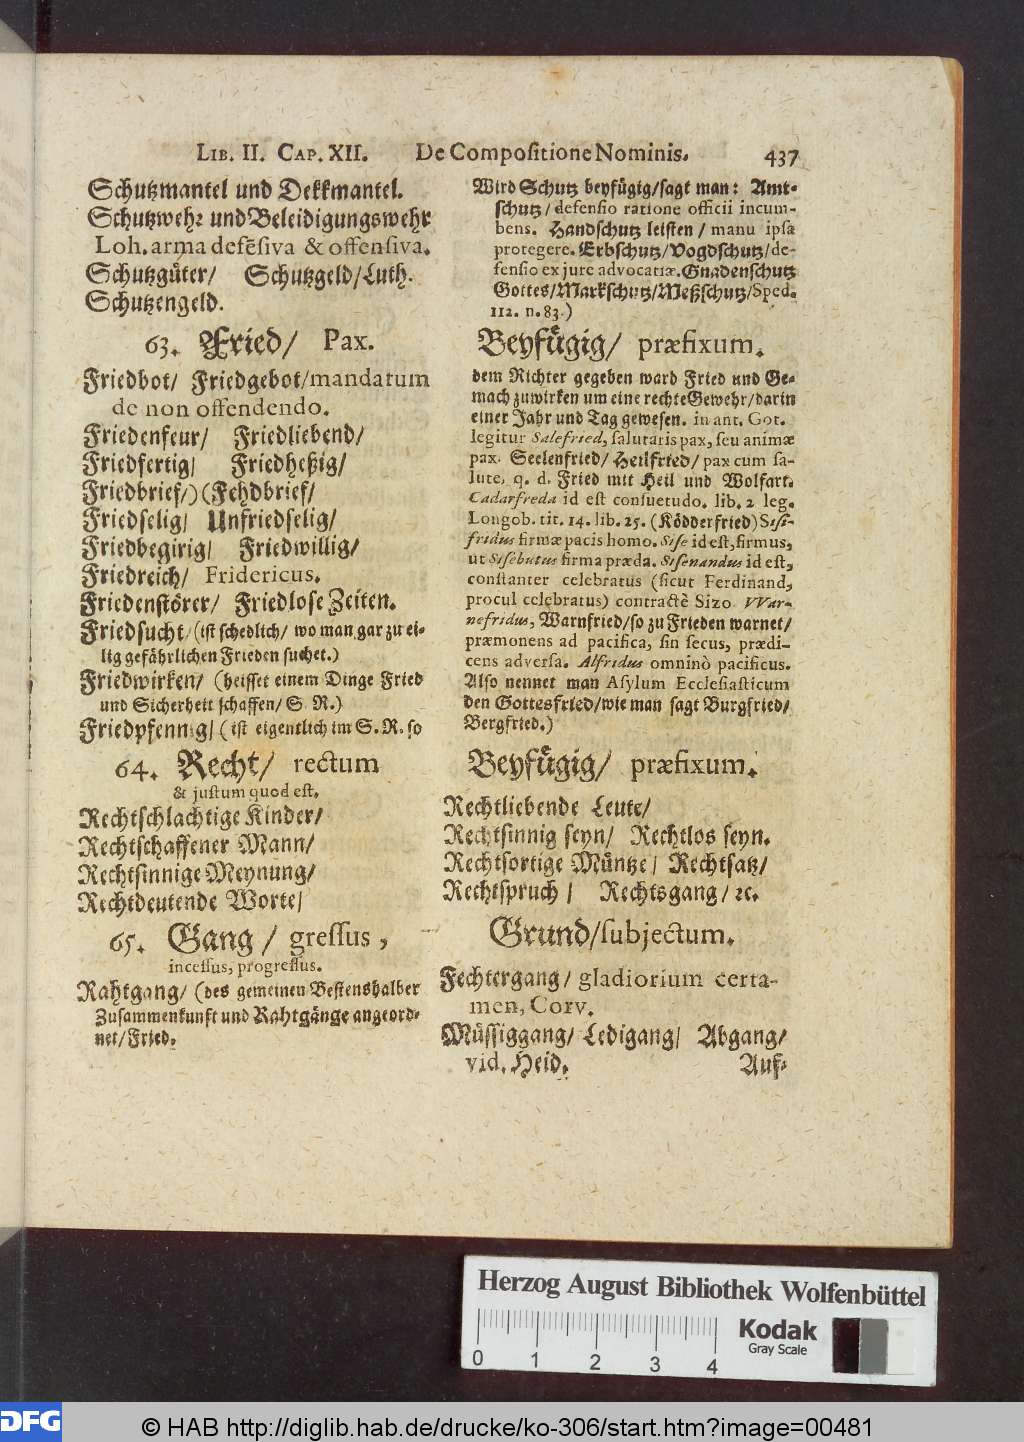 LIB. II. CAP. XII. De Compositione Nominis. 437
Schutzmantel und Dekkmantel.
Schutzwehr und Beleidigungswehr
Loh. arma defēsiva & offensiva.
Schutzgüter/ Schutzgeld/Luth.
Schutzengeld.
63. Fried/ Pax.
Friedbot/ Friedgebot/mandatum
de non offendendo.
Friedenfeur/ Friedliebend/
Friedfertig/ Friedheßig/
Friedbrief/)(Fehdbrief/
Friedselig/ Unfriedselig/
Friedbegirig/ Friedwillig/
Friedreich/ Fridericus.
Friedenstörer/ Friedlose Zeiten.
Friedsucht/(ist schedlich/ wo man gar zu ei-
lig gefährlichen Frieden suchet.)
Friedwirken/ (heisset einem Dinge Fried
und Sicherheit schaffen/ S. R.)
Friedpfennig/ (ist eigentlich im S. R. so
64. Recht/ rectum
& justum quod est.
Rechtschlachtige Kinder/
Rechtschaffener Mann/
Rechtsinnige Meynung/
Rechtdeutende Worte/
65. Gang/ gressus,
incessus, progressus.
Rahtgang/ (des gemeinen Bestenshalber
Zusammenkunft und Rahtgänge angeord-
net/Fried.
Wird Schutz beyfügig/sagt man: Amt-
schutz/defensio ratione officii incum-
bens. Handschutz leisten/ manu ipsâ
protegere. Erbschutz/Vogdschutz/de-
fensio ex jure advocatiæ. Gnadenschutz
Gottes/Markschutz/Meßschutz/Sped.
112. n. 83.)
Beyfügig/ præfixum.
dem Richter gegeben ward Fried und Ge-
mach zuwirken um eine rechte Gewehr/darin
einer Jahr und Tag gewesen. in ant. Got.
legitur Salefried, salutaris pax, seu animæ
pax. Seelenfried/ Heilfried/ pax cum sa-
lute, q. d. Fried mit Heil und Wolfart.
Cadarfreda id est consuetudo. lib. 2 leg.
Longob. tit. 14. lib. 25. (Ködderfried) Sisi-
fridus firmæ pacis homo. Sise id est, firmus,
ut Sisebutus firma præda. Sisenandus id est,
constanter celebratus (sicut Ferdinand,
procul celebratus) contractè Sizo VVar-
nefridus, Warnfried/so zu Frieden warnet/
præmonens ad pacifica, sin secus, prædi-
cens adversa. Alfridus omninò pacificus.
Also nennet man Asylum Ecclesiasticum
den Gottesfried/wie man sagt Burgfried/
Bergfried.)
Beyfügig/ præfixum.
Rechtliebende Leute/
Rechtsinnig seyn/ Rechtlos seyn.
Rechtsortige Müntze/ Rechtsatz/
Rechtspruch/ Rechtsgang/ ꝛc.
Grund/subjectum.
Fechtergang/ gladiorium certa-
men, Corv.
Müssiggang/ Ledigang/ Abgang/
vid. Heid.
Auf-
Herzog August Bibliothek Wolfenbüttel
0 1 2 3 4
Kodak
Gray Scale
DFG
© HAB http://diglib.hab.de/drucke/ko-306/start.htm?image=00481